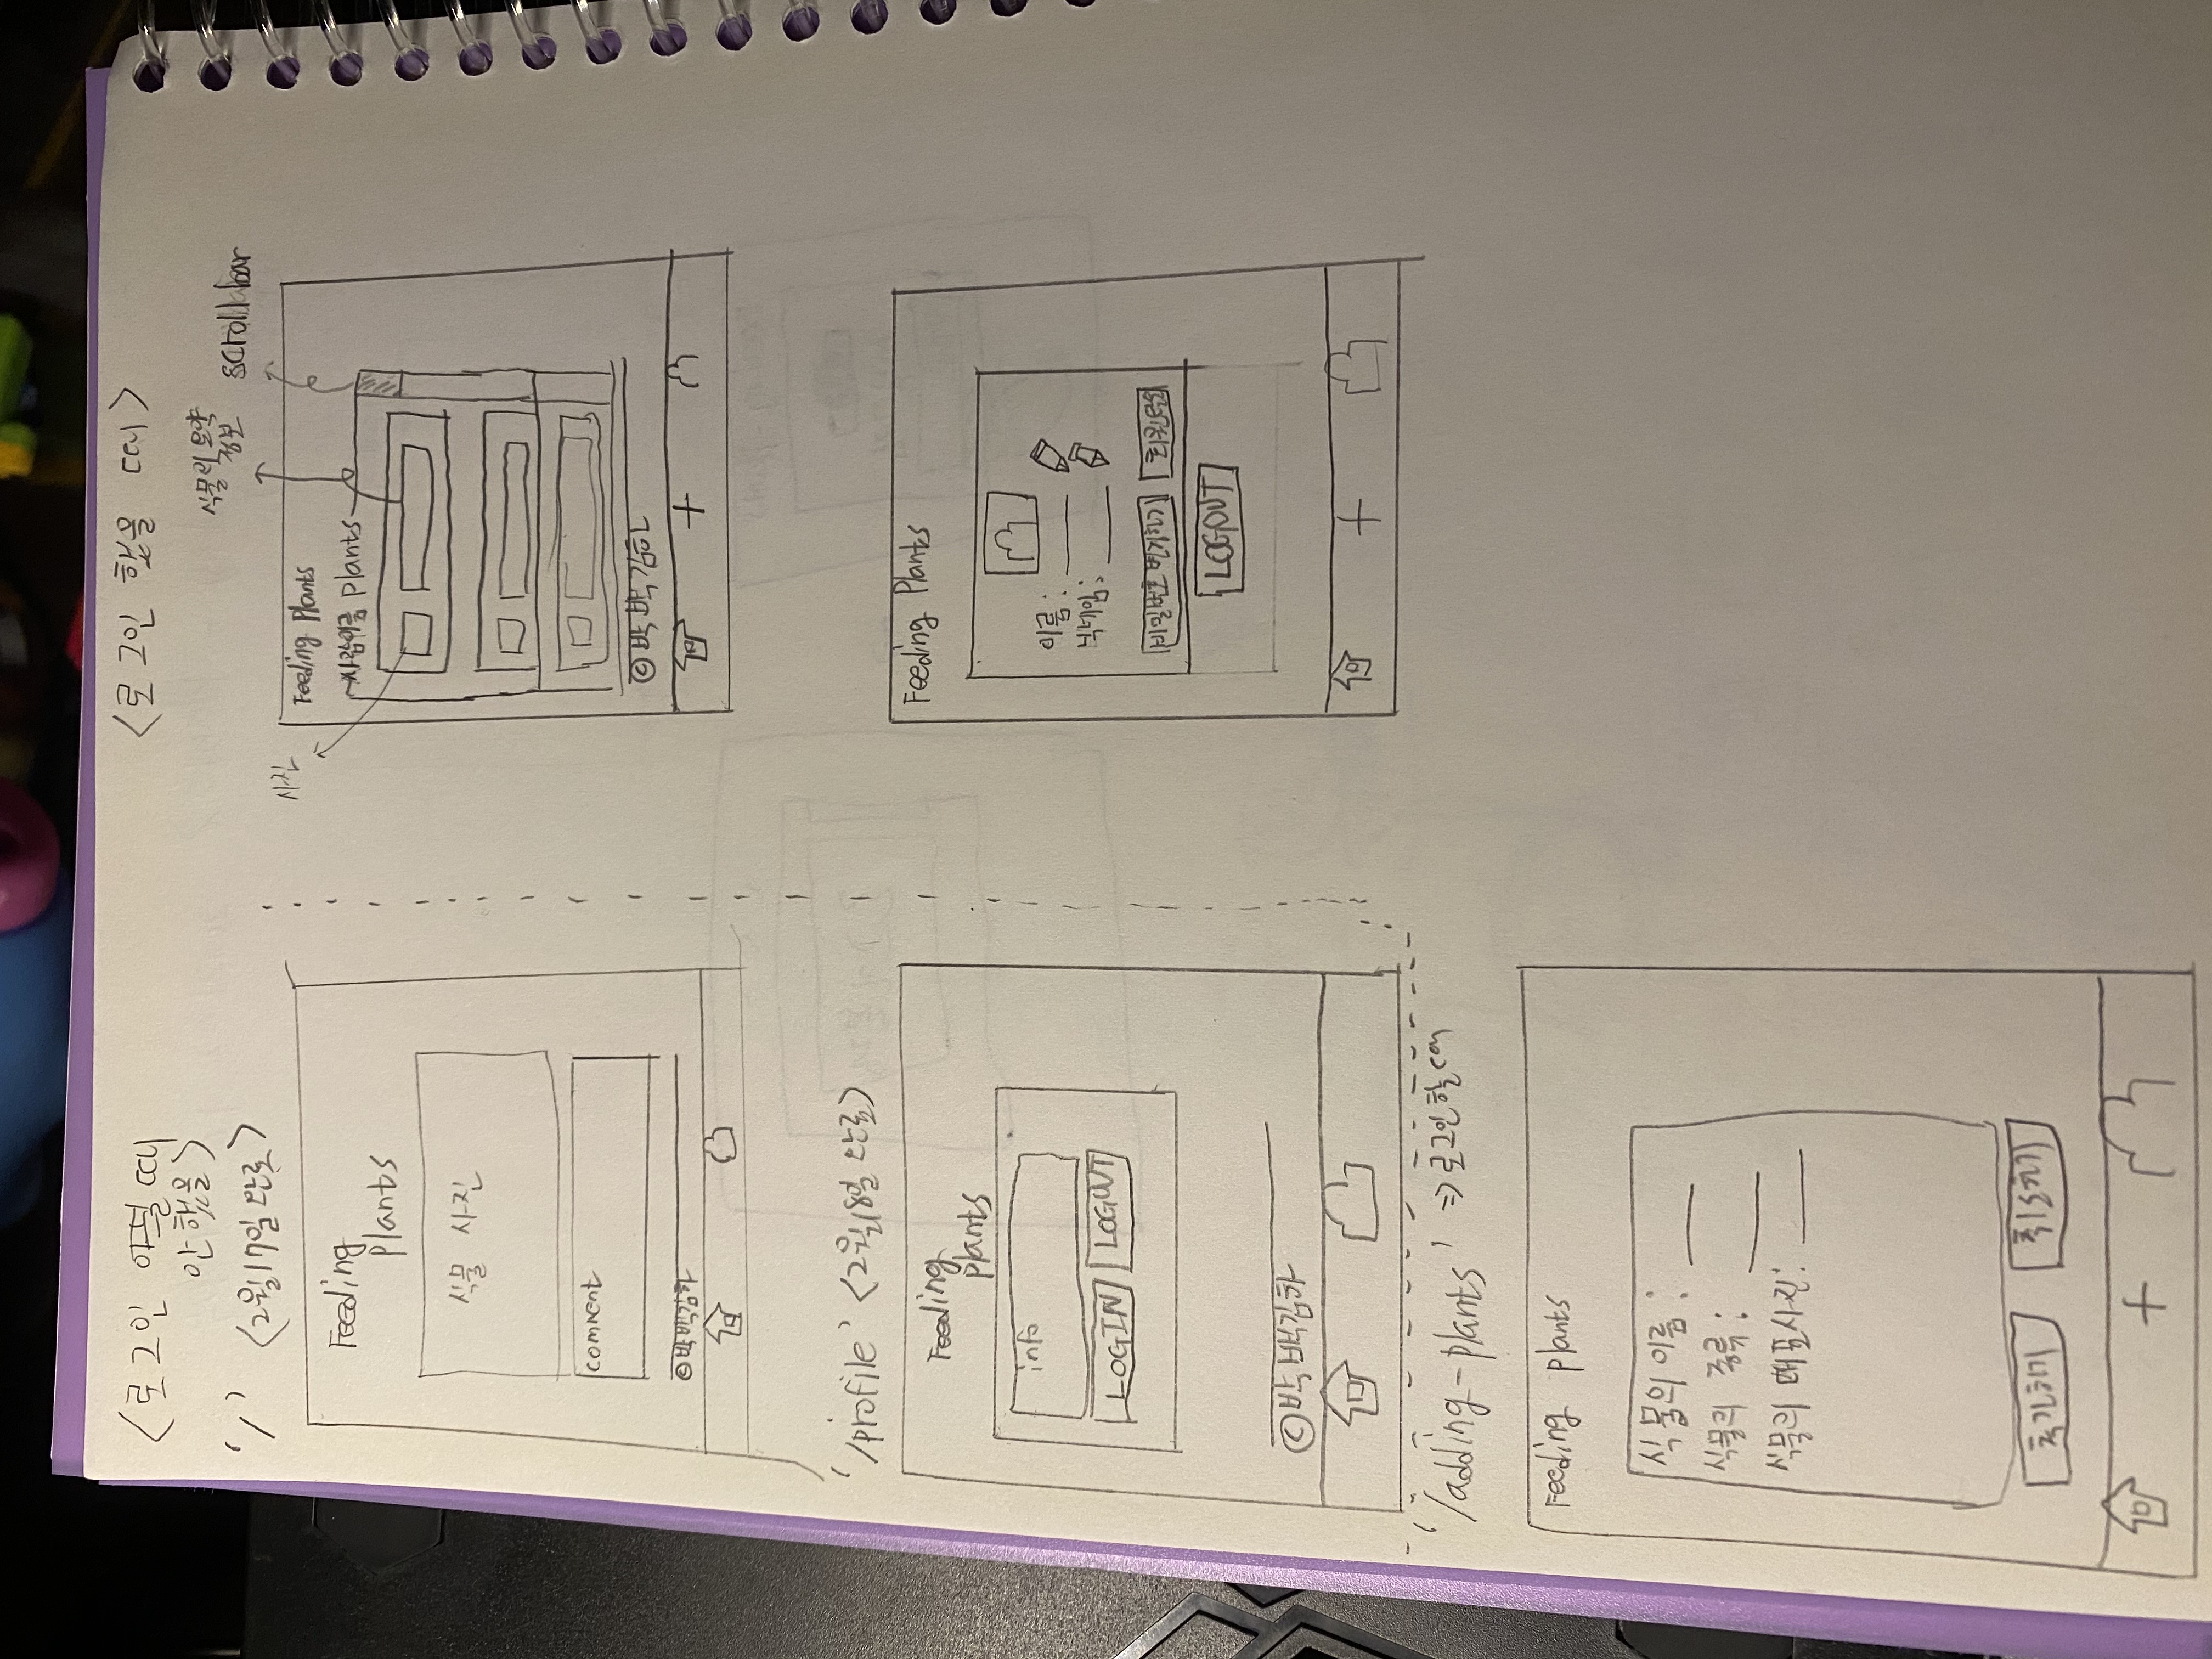 <로그인
안했을>
'/' <2월17일 완료>
Feeding
plants
식물 사진
comment
©박백김하
'/profile' <2월18일 완료>
Feeding
plants
info
LOGIN LOGOUT
©박백김하
'/adding-plants' => 로그인할때
Feeding plants
식물의 이름:
식물의 종류:
식물의 대표사진:
추가하기 취소하기
<로그인 했을 때>
식물의 요약
정보
scrollbar
사진
Feeding Plants
사람이름 plants
©박백김하
Feeding Plants
이름:
닉네임:
비밀번호 변경하기 회원탈퇴
LOGOUT